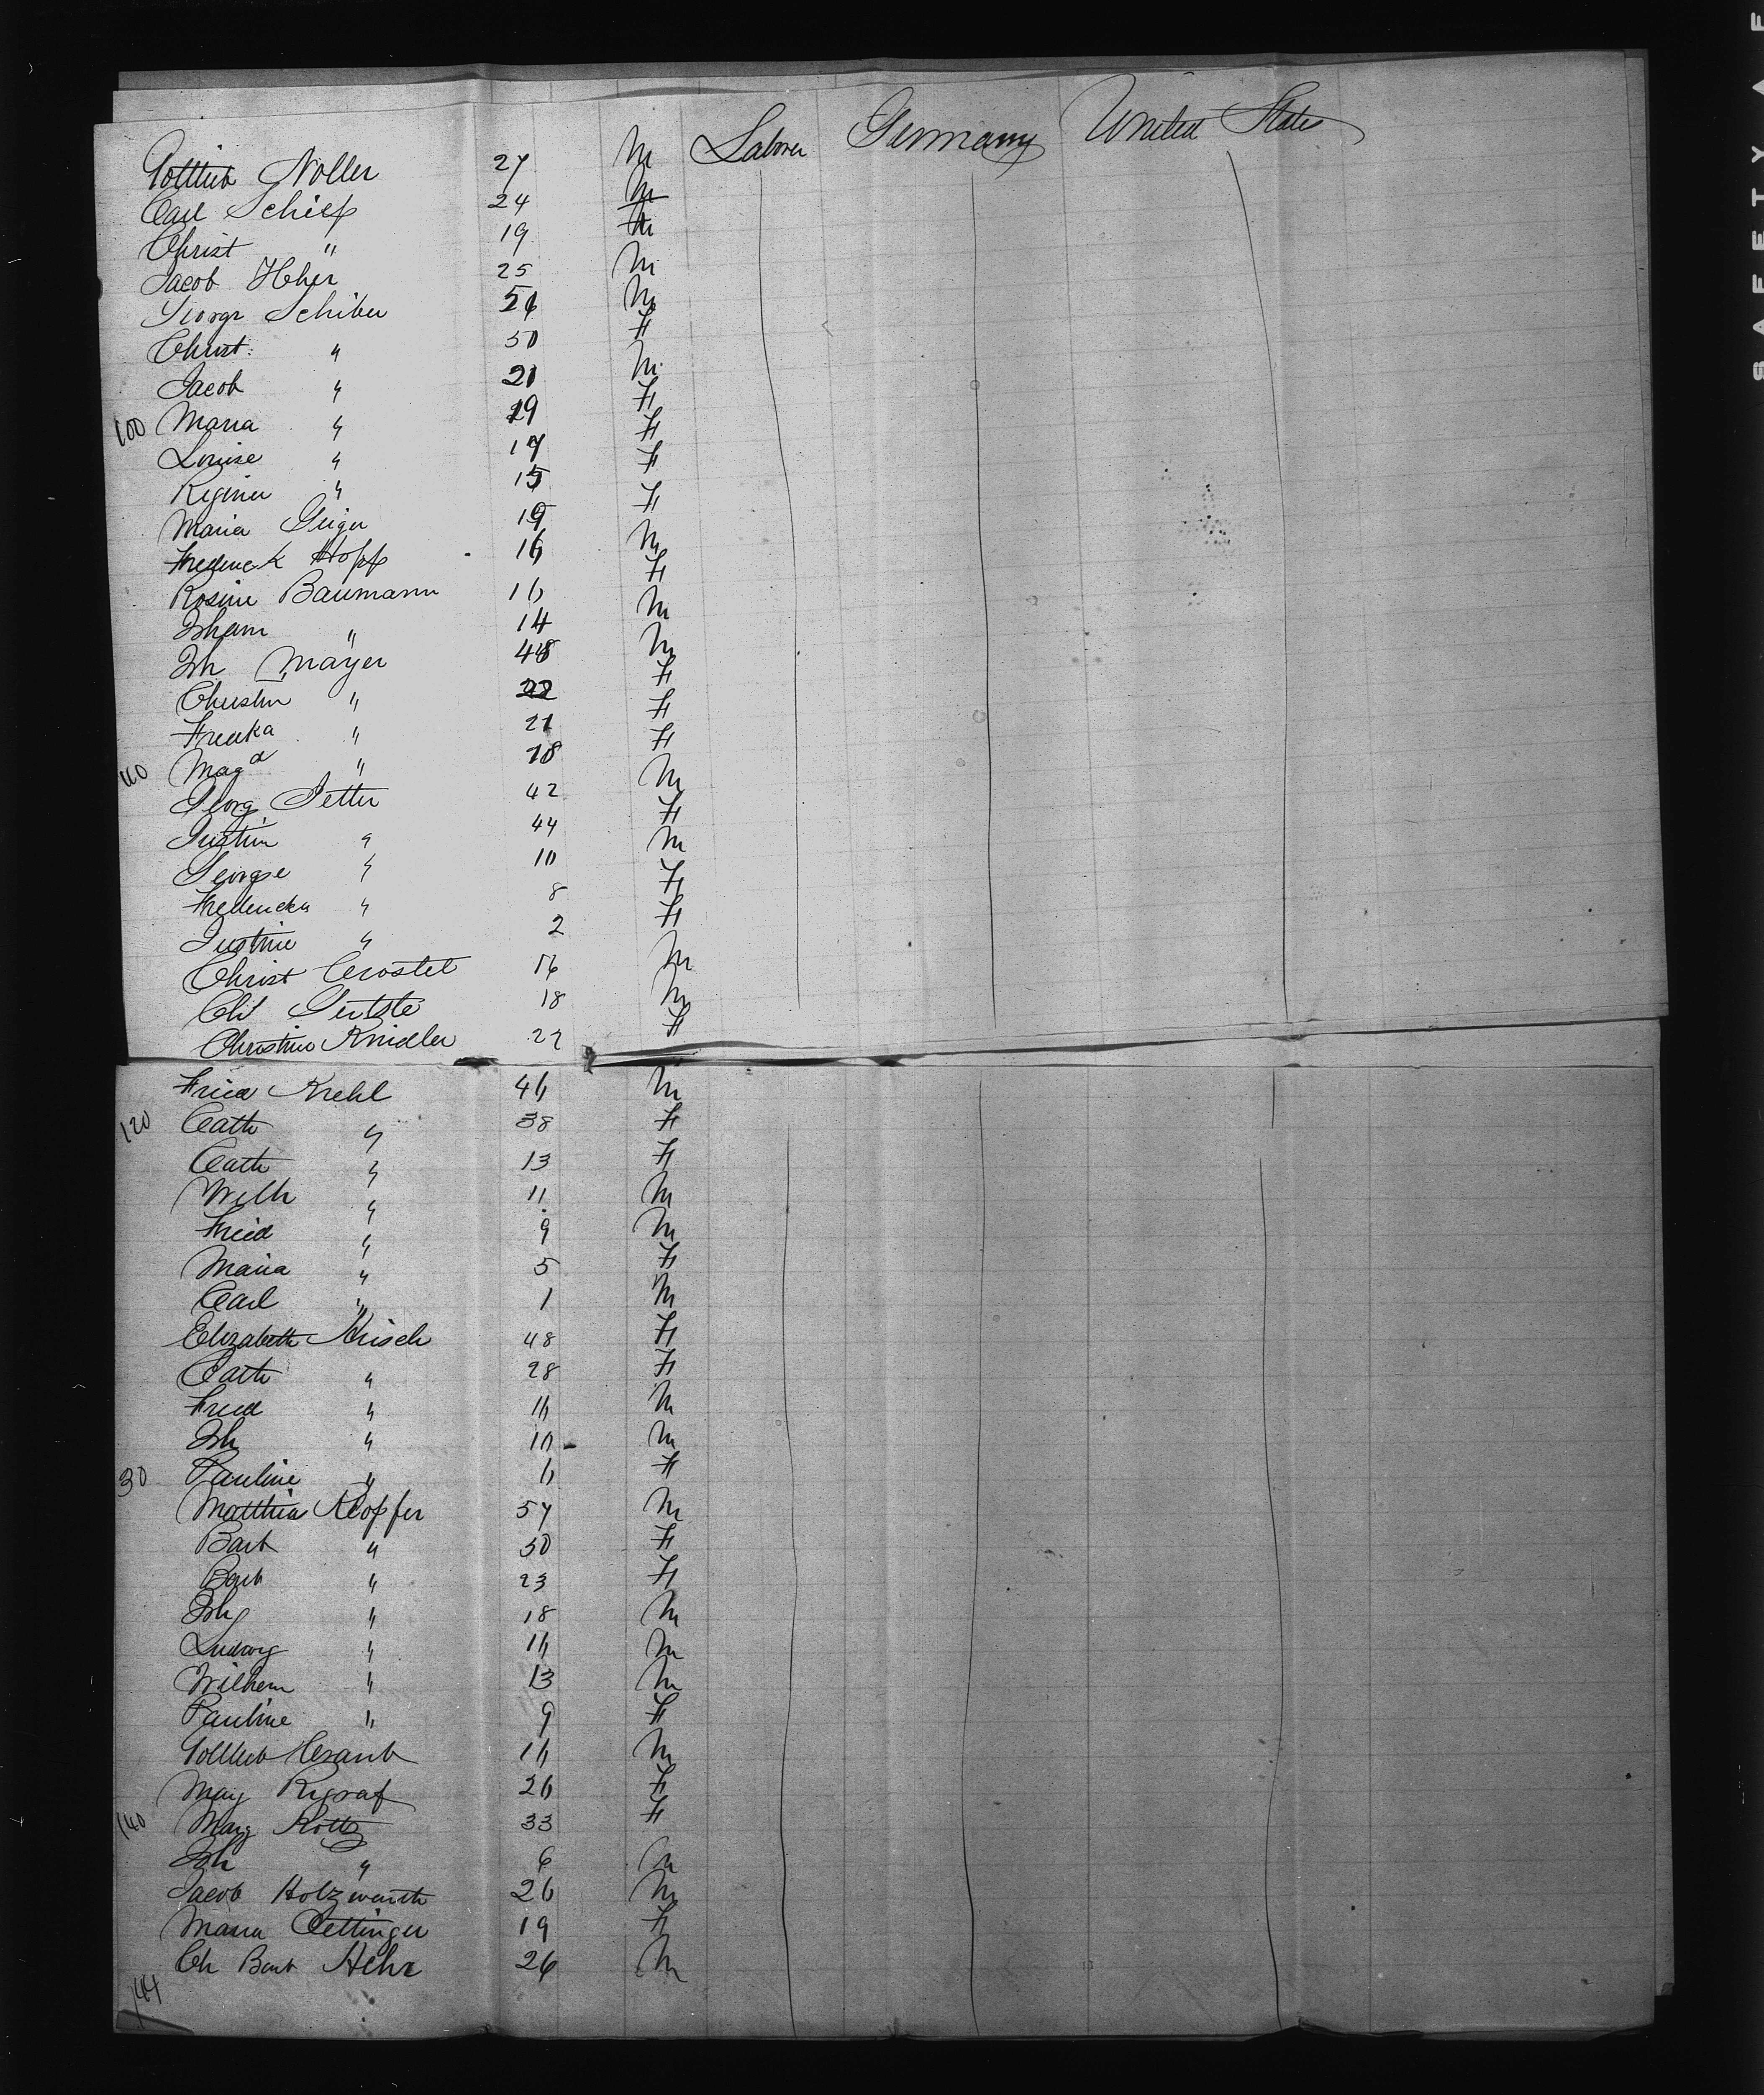 Gottlieb Noller 27 M Laborer Germany United States
Carl Schief 24 M
Christ " 19 M
Jacob Heher 25 M
George Schiber 56 M
Christ. " 50 F
Jacob " 21 M
100 Maria " 19 F
Louise " 17 F
Regina " 15 F
Maria Geiger 19 F
Frederick Hopf 16 M
Rosine Baumann 16 F
Joh " 14 M
Joh Mayer 48 M
Christin " 22 F
Fredka " 21 F
110 Magd " 18 F
Georg Jetter 42 M
Justin " 44 F
George " 10 M
Fredericka " 8 F
Justine " 2 F
Christ 16 M
18 M
Christine Kniedler 27 F
Fried Krehl 46 M
120 Cath " 38 F
Cath " 13 F
Wilh " 11 M
Fried " 9 M
Maria " 5 F
Carl " 1 M
Elizabeth Hirsch 48 F
Cath " 28 F
Fried " 16 M
Joh " 10 M
30 Pauline " 6 F
Matthias Klopfer 57 M
Barb " 50 F
Barb " 23 F
Joh " 18 M
Ludwig " 16 M
Wilhem " 13 M
Pauline " 9 F
Gottlieb 16 M
Mag Rygraf 26 F
140 Marg Kottz 33 F
Joh " 6 M
Jacob Holzwarth 26 M
Maria Oettinger 19 F
Ch Bart Hehr 26 M
144
SAFETY